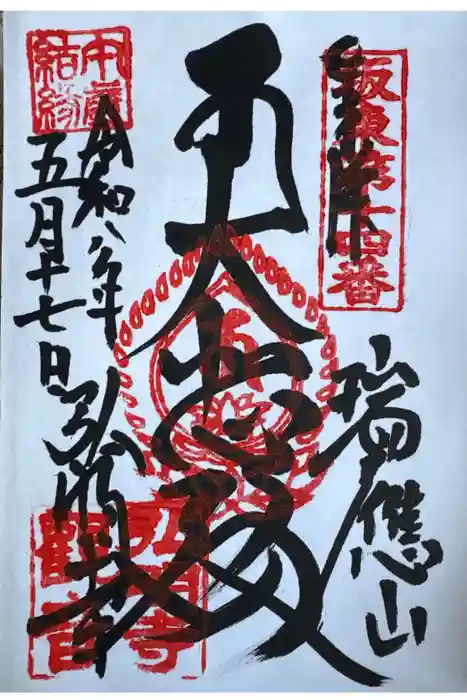 坂東第十四番
奉拝
瑞應山
大悲殿
弘明寺
觀音
午歳
結縁
令和八年
五月十七日
弘明寺